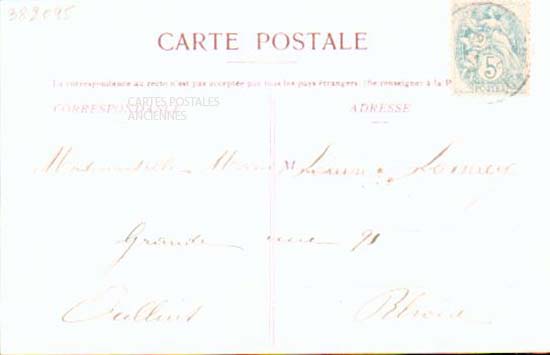 382095
CARTE POSTALE
La correspondance au recto n'est pas acceptée par tous les pays étrangers. (Se renseigner à la P
CORRESPONDANCE
CARTES POSTALES
ANCIENNES
ADRESSE
5c
POSTES
Mademoiselle Marie Laure
Grande rue 91
Oullins Rhône